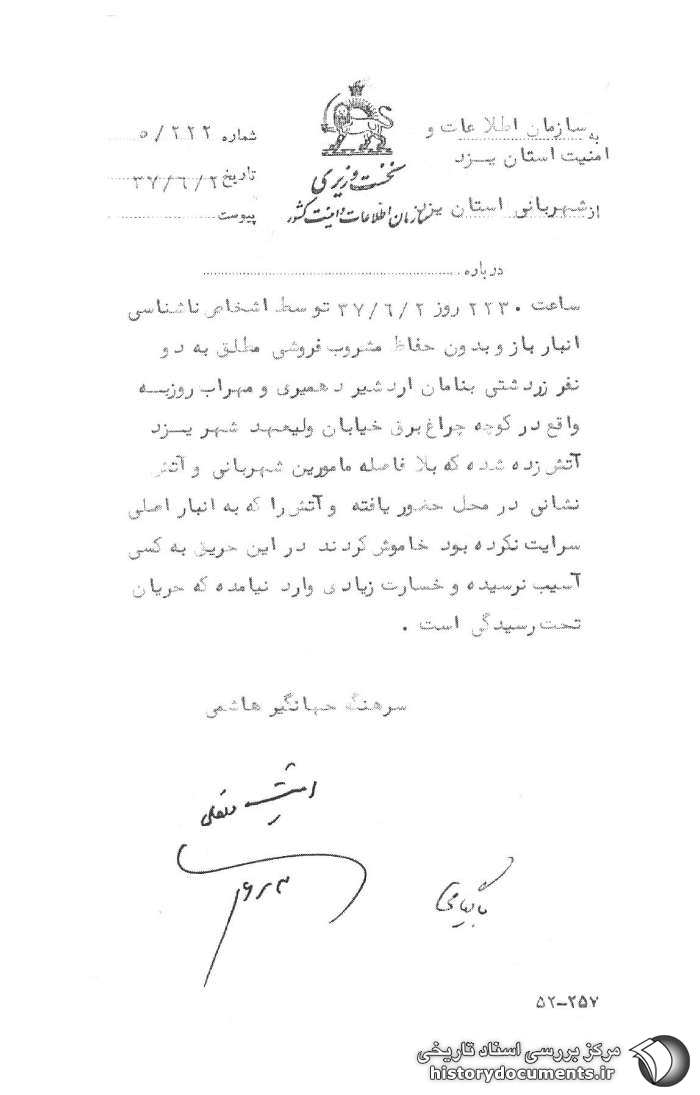 به سازمان اطلاعات و
امنیت استان یزد
از شهربانی استان یزد
نخست وزیری
سازمان اطلاعات و امنیت کشور
شماره ۵/۲۲۲
تاریخ ۳۷/۶/۲
پیوست
درباره
ساعت ۲۲۳۰ روز ۳۷/۶/۲ توسط اشخاص ناشناسی
انبار باز و بدون حفاظ مشروب فروشی مطلق به دو
نفر زردشتی بنامان اردشیر دهمیری و مهراب روزبه
واقع در کوچه چراغ برق خیابان ولیعهد شهر یزد
آتش زده شده که بلا فاصله مامورین شهربانی و آتش
نشانی در محل حضور یافته و آتش را که به انبار اصلی
سرایت نکرده بود خاموش کردند در این حریق به کسی
آسیب نرسیده و خسارت زیادی وارد نیامده که جریان
تحت رسیدگی است .
سرهنگ جهانگیر هاشمی
بایگانی
۵۲-۲۵۷
مرکز بررسی اسناد تاریخی
historydocuments.ir